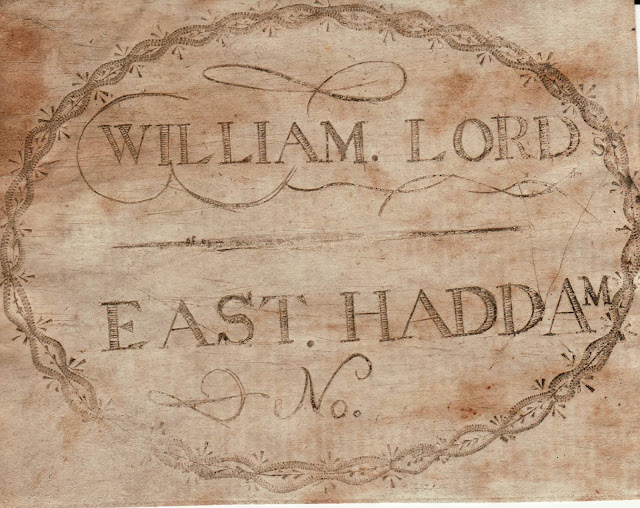 WILLIAM. LORDs
EAST. HADDAM
No.